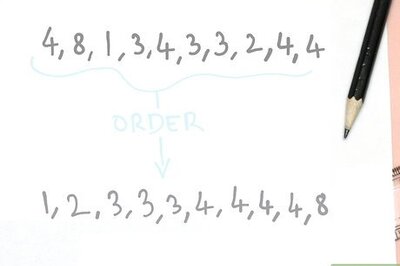 4, 8, 1, 3, 4, 3, 3, 2, 4, 4
ORDER
1, 2, 3, 3, 3, 4, 4, 4, 4, 8